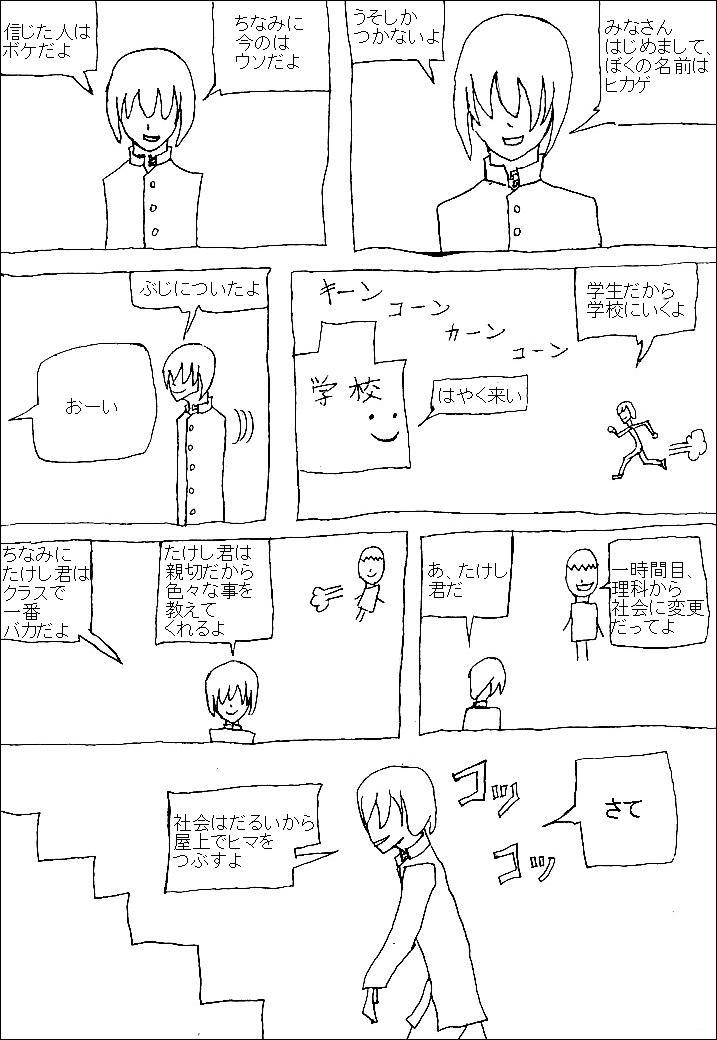 みなさん
はじめまして、
ぼくの名前は
ヒカゲ
うそしか
つかないよ
ちなみに
今のは
ウソだよ
信じた人は
ボケだよ
学生だから
学校にいくよ
キーン
コーン
カーン
コーン
学校
はやく来い
ぶじについたよ
おーい
一時間目、
理科から
社会に変更
だってよ
あ、たけし
君だ
たけし君は
親切だから
色々な事を
教えて
くれるよ
ちなみに
たけし君は
クラスで
一番
バカだよ
さて
コッ
コッ
社会はだるいから
屋上でヒマを
つぶすよ